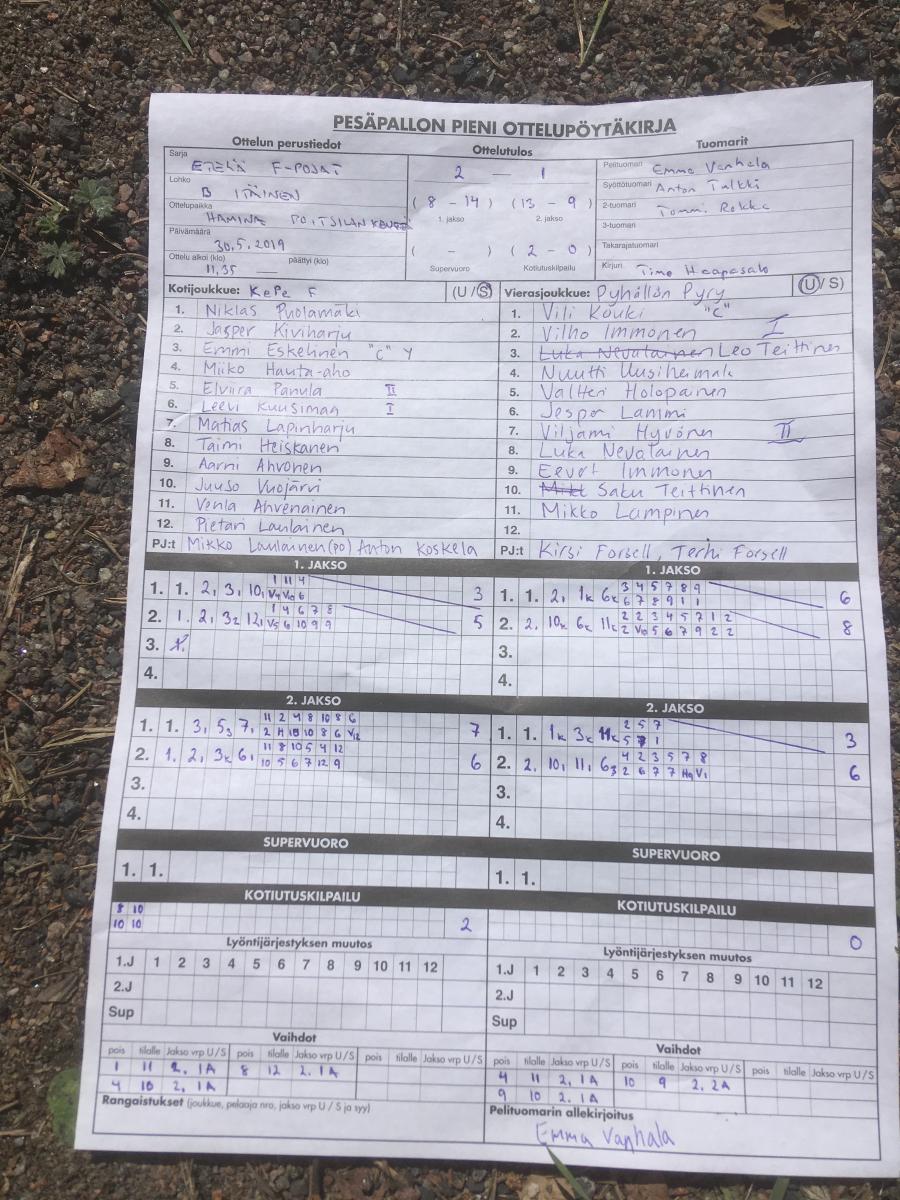 PESÄPALLON PIENI OTTELUPÖYTÄKIRJA
Ottelun perustiedot Ottelutulos Tuomarit
Sarja ETELÄ F-POJAT
Lohko B ITÄINEN
Ottelupaikka HAMINA POITSILAN
Päivämäärä 30.5.2019
Ottelu alkoi (klo) 11.35 päättyi (klo) —
2 — 1
( 8 - 14 ) ( 13 - 9 )
1. jakso 2. jakso
( - ) ( 2 - 0 )
Supervuoro Kotiutuskilpailu
Pelituomari Emma Vanhala
Syöttötuomari Anton Tulkki
2-tuomari Tommi Rokka
3-tuomari
Takarajatuomari
Kirjuri Timo Haapasalo
Kotijoukkue: KePe F (U / S)
1. Niklas Puolamäki
2. Jasper Kiviharju
3. Emmi Eskelinen "C" Y
4. Miiko Hauta-aho
5. Elviira Panula II
6. Leevi Kuusimaa I
7. Matias Lapinharju
8. Taimi Heiskanen
9. Aarni Ahvonen
10. Juuso Vuojärvi
11. Venla Ahvenainen
12. Pietari Laulainen
PJ:t Mikko Laulainen (po) Anton Koskela
Vierasjoukkue: Pyhällön Pyry (U / S)
1. Vili Kouki "C"
2. Vilho Immonen I
3. Luka Nevalainen Leo Teittinen
4. Nuutti Uusiheimala
5. Valtteri Holopainen
6. Jesper Lammi
7. Viljami Hyvönen II
8. Luka Nevalainen
9. Eevert Immonen
10. Saku Teittinen
11. Mikko Lampinen
12.
PJ:t Kirsi Forsell, Terhi Forsell
1. JAKSO
1. 1. 2, 3, 10, 1 11 4 3
V4 V10 6
2. 1. 2, 32 12, 1 4 6 7 8 5
V5 6 10 9 9
3. 1.
4.
1. JAKSO
1. 1. 2, 1k 6k 3 4 5 7 8 9 6
6 7 8 9 1 1
2. 2. 10k 6k 11k 2 2 3 4 5 7 1 2 8
2 V10 5 6 7 9 2 2
3.
4.
2. JAKSO
1. 1. 3, 53 7, 11 2 4 8 10 8 6 7
2 4 10 10 8 6 V12
2. 1. 2, 3k 6, 11 8 10 5 4 12 6
10 5 6 7 12 9
3.
4.
2. JAKSO
1. 1. 1k 3k 11k 2 5 7 3
5 7 1
2. 2. 10, 11, 63 4 2 3 5 7 8 6
2 6 7 7 H9 V1
3.
4.
SUPERVUORO
1. 1.
SUPERVUORO
1. 1.
KOTIUTUSKILPAILU
8 10
10 10 2
KOTIUTUSKILPAILU
0
Lyöntijärjestyksen muutos
1.J 1 2 3 4 5 6 7 8 9 10 11 12
2.J
Sup
Lyöntijärjestyksen muutos
1.J 1 2 3 4 5 6 7 8 9 10 11 12
2.J
Sup
Vaihdot
pois tilalle Jakso vrp U / S pois tilalle Jakso vrp U / S pois tilalle Jakso vrp U / S
1 11 2. 1A 8 12 2. 1A
4 10 2. 1A
Rangaistukset (joukkue, pelaaja nro, jakso vrp U / S ja syy)
Vaihdot
pois tilalle Jakso vrp U / S pois tilalle Jakso vrp U / S pois tilalle Jakso vrp U / S
4 11 2. 1A 10 9 2. 2A
9 10 2. 1A
Pelituomarin allekirjoitus
Emma Vanhala